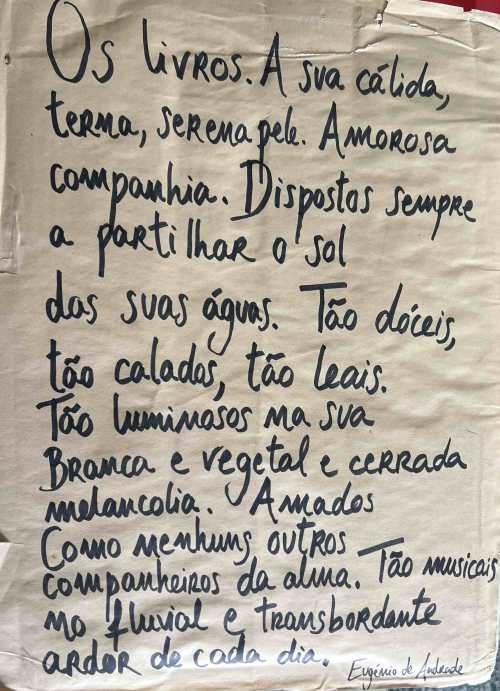 Os livros. A sua cálida,
terna, serena pele. Amorosa
companhia. Dispostos sempre
a partilhar o sol
das suas águas. Tão dóceis,
tão calados, tão leais.
Tão luminosos na sua
Branca e vegetal e cerrada
melancolia. Amados
Como nenhuns outros
companheiros da alma. Tão musicais
no fluvial e transbordante
ardor de cada dia.
Eugénio de Andrade